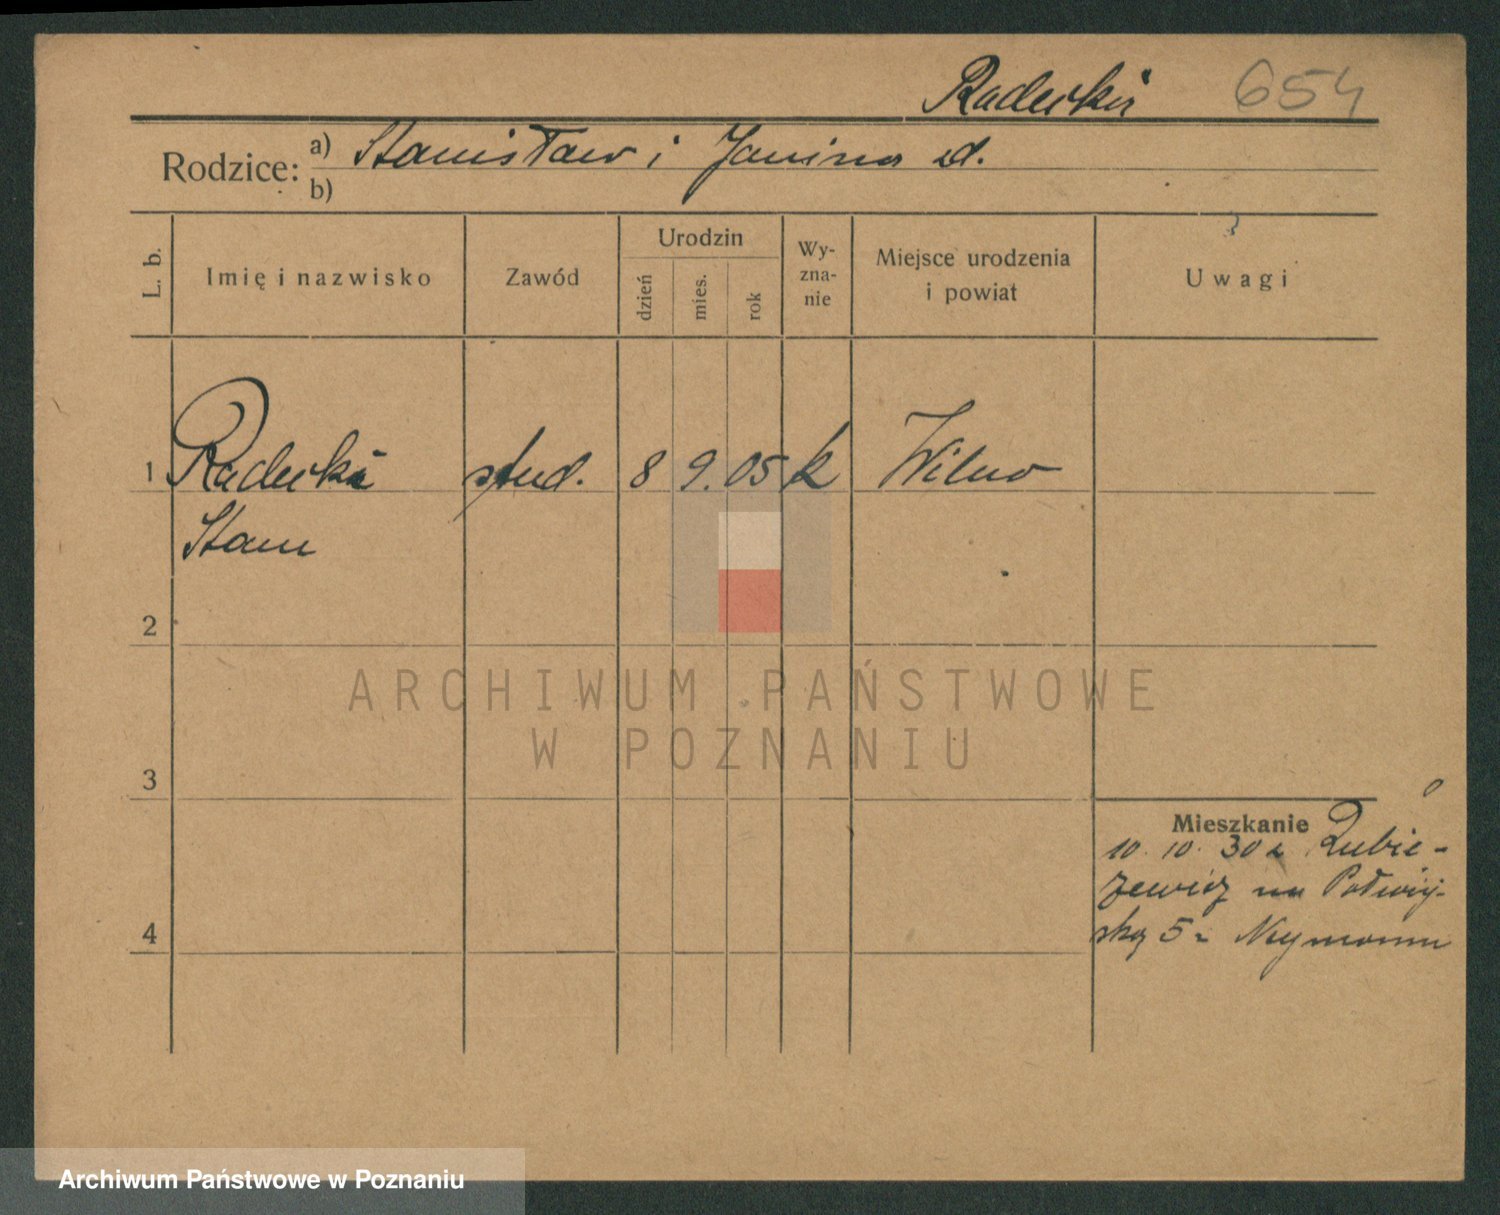 Radecki 654
Rodzice: a) Stanisław i Janina d.
b)
L. b.
Imię i nazwisko
Zawód
Urodzin
dzień
mies.
rok
Wy-
zna-
nie
Miejsce urodzenia
i powiat
Uwagi
1 Radecki stud. 8 9. 05 k Wilno
Stan
2
ARCHIWUM PAŃSTWOWE
W POZNANIU
3
Mieszkanie
10. 10. 30 z
na
4
5
Archiwum Państwowe w Poznaniu